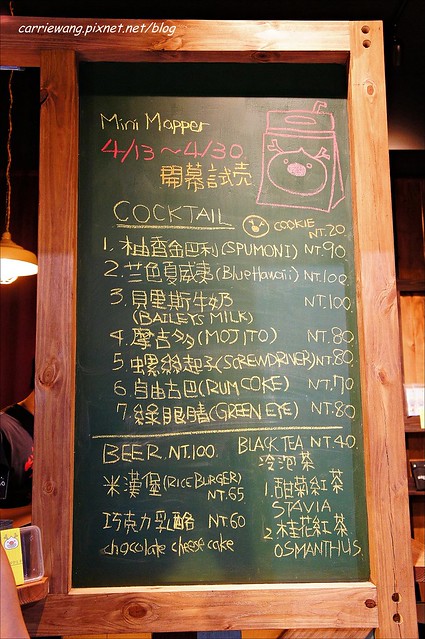 carriewang.pixnet.net/blog
Mini Mapper
4/13~4/30
開幕試売
COCKTAIL
COOKIE
NT.20
1. 柚香金巴利(SPUMONI) NT.90
2. 兰色夏威夷(Blue Hawaii) NT.100
3. 貝里斯牛奶 NT.100
(BAILEYS MILK)
4. 摩吉多(MOJITO) NT.80
5. 螺絲起子(SCREWDRIVER) NT.80
6. 自由古巴(RUM COKE) NT.70
7. 綠眼睛(GREEN EYE) NT.80
BEER. NT.100
米漢堡(RICE BURGER)
NT.65
巧克力乳酪 NT.60
chocolate cheese cake
BLACK TEA NT.40
冷泡茶
1. 甜菊紅茶
STAVIA
2. 桂花紅茶
OSMANTHUS